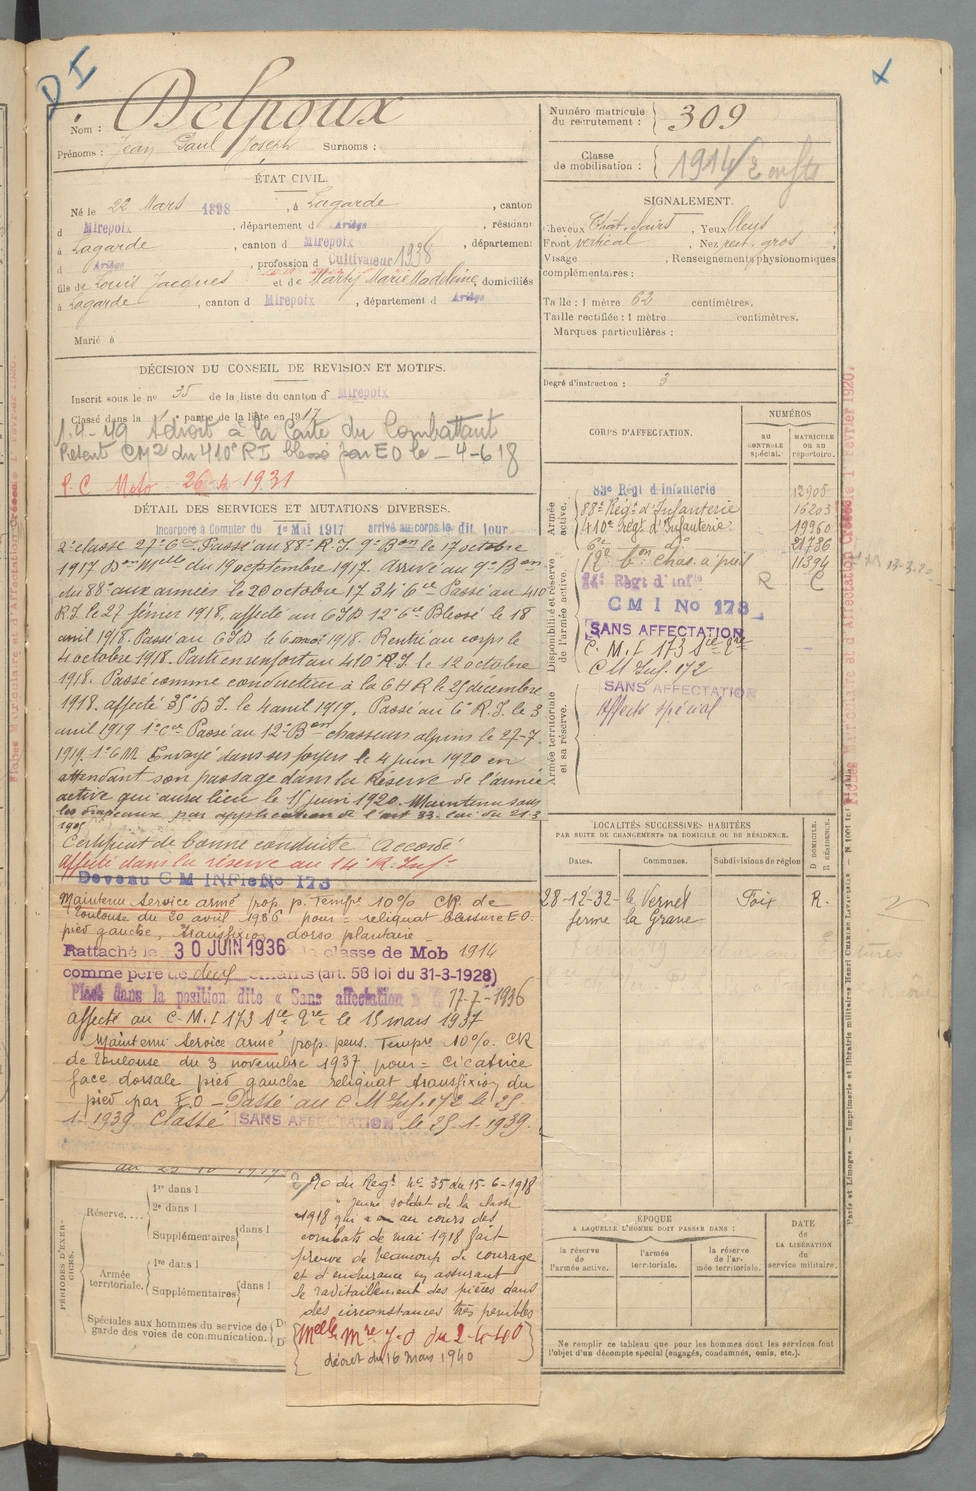 DI
Nom : Delpoux
Prénoms : Jean Paul Joseph Surnoms :
ÉTAT CIVIL.
Né le 22 Mars 1898, à Lagarde, canton
d Mirepoix, département d Ariège, résidant
à Lagarde, canton d Mirepoix, département
d Ariège, profession d Cultivateur 1938
fils de Louis Jacques et de Marty Marie Madeleine, domiciliés
à Lagarde, canton d Mirepoix, département d Ariège
Marié à
DÉCISION DU CONSEIL DE REVISION ET MOTIFS.
Inscrit sous le no 35 de la liste du canton d Mirepoix
Classé dans la 1 partie de la liste en 1917
1.4-49 A droit à la Carte du Combattant
Présent CM2 du 410e RI blessé par EO le - 4-6 18
P.C. Moto 26 1931
DÉTAIL DES SERVICES ET MUTATIONS DIVERSES.
Incorporé à Compter du 1er Mai 1917 arrivé au corps le dit jour
2e classe 27e Cie Passé au 88e R.I. 9e Bon le 17 octobre
1917 Don Melle du 19 septembre 1917. Arrivé au 9e Bon
du 88e aux armées le 20 octobre 17 34e Cie Passé au 410
R.I. le 27 février 1918, affecté au CID 12e Cie Blessé le 18
avril 1918. Passé au CID le 6 mai 1918. Rentré au corps le
4 octobre 1918. Parti en renfort au 410e R.I. le 12 octobre
1918. Passé comme conducteur à la CHR le 25 décembre
1918. affecté 35e D.I. le 4 avril 1919. Passé au 6e R.I. le 3
avril 1919 1e Cie Passé au 12e Bon chasseurs alpins le 27-7
1919. 1e CM Envoyé dans ses foyers le 4 juin 1920 en
attendant son passage dans la Réserve de l'armée
active qui aura lieu le 15 juin 1920. Maintenu sous
les drapeaux par application de l'art 33. loi du 21.3
1905
Certificat de bonne conduite Accordé
affecté dans la réserve au 14e R. Inf.
Devenu CM INFie No 173
Maintenu Service armé prop. p. Tempre 10% CR de
Toulouse du 30 avril 1936 pour = reliquat blessure E.O.
pied gauche, transfixion dorso plantaire
Rattaché le 30 JUIN 1936 la classe de Mob 1914
comme père de deux enfants (art. 58 loi du 31-3-1928)
Placé dans la position dite « Sans affectation » 17-7-1936
affecté au C.M.I 173 Sie Qre le 15 mars 1937
Maintenu Service armé, prop. pens. Tempre 10%. CR
de Toulouse du 3 novembre 1937 pour = cicatrice
face dorsale pied gauche reliquat transfixion du
pied par E.O - Passé au C M Inf. 172 le 25-
1-1939. Classé SANS AFFECTATION le 25-1-1939.
PÉRIODES D'EXERCICES.
Réserve..... 1re dans l
2e dans l
Supplémentaires dans l
Armée territoriale. 1re dans l
Supplémentaires dans l
Spéciales aux hommes du service de
garde des voies de communication.
du Regt No 35 du 15-6-1918
" Jeune soldat de la classe
1918 qui a au cours des
combats de mai 1918 fait
preuve de beaucoup de courage
et d'endurance en assurant
le ravitaillement des pièces dans
des circonstances très pénibles
Melle Mre J.O du 2-4-40
décret du 16 mars 1940
Numéro matricule du recrutement : 309
Classe de mobilisation : 1914 / 2 enfts
SIGNALEMENT.
Cheveux Chat. foncés, Yeux bleus
Front vertical, Nez rect. gros,
Visage , Renseignements physionomiques
complémentaires :
Taille : 1 mètre 62 centimètres.
Taille rectifiée : 1 mètre centimètres.
Marques particulières :
Degré d'instruction : 3
CORPS D'AFFECTATION.
NUMÉROS
AU CONTRÔLE spécial.
MATRICULE OU AU répertoire.
Armée active.
83e Régt d'Infanterie 12905
88e Régt d'Infanterie 16203
410e Régt d'Infanterie 19960
6e do 21736
12e Bon chas. alpins 11394
Disponibilité et réserve de l'armée active.
14e Régt d'Infie R C
CMI No 173
SANS AFFECTATION
C.M.I 173 Sie Qre
CM Inf. 172
Armée territoriale et sa réserve.
SANS AFFECTATION
Affecté spécial
LOCALITÉS SUCCESSIVES HABITÉES
PAR SUITE DE CHANGEMENTS DE DOMICILE OU DE RÉSIDENCE.
Dates. Communes. Subdivisions de région D DOMICILE. R RÉSIDENCE.
28-12-32 le Vernet Foix R.
ferme la Grave
ÉPOQUE
A LAQUELLE L'HOMME DOIT PASSER DANS :
la réserve de l'armée active.
l'armée territoriale.
la réserve de l'armée territoriale.
DATE de LA LIBÉRATION du service militaire.
Ne remplir ce tableau que pour les hommes dont les services font
l'objet d'un décompte spécial (engagés, condamnés, omis, etc.).
Paris et Limoges — Imprimerie et librairie militaires Henri CHARLES-LAVAUZELLE
Fiches Matriculaire et d'Affectation Créées le 1 Février 1920.